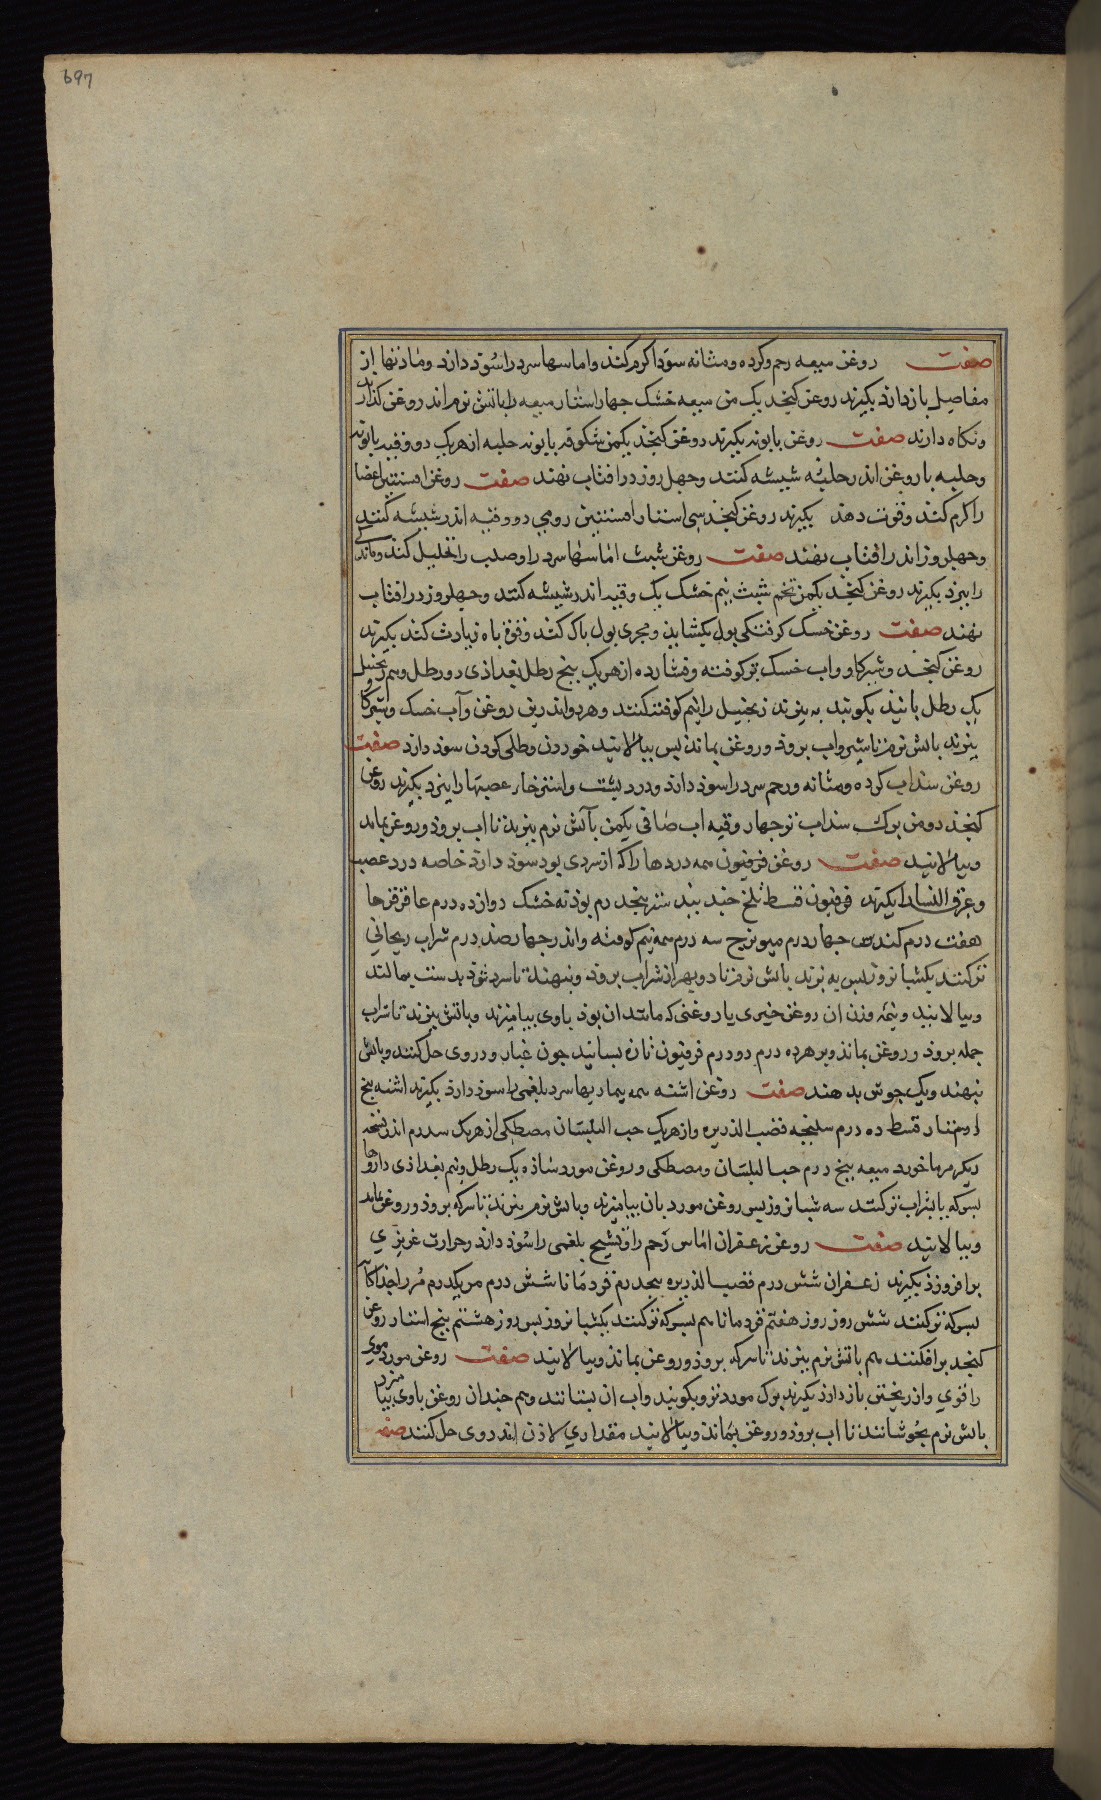 697
صفت روغن میعه رحم و کرده و مثانه سوذا کرم کند و اماسها سرد را سوذ دارد و ماذتها از
مفاصل باز دارد بکیرند روغن کنجد یک من میعه خشک جهار استار میعه را باتش نرم اندر روغن کذارند
و نکاه دارند صفت روغن بابونه بکیرند روغن کنجد یکمن شکوفه بابونه حلبه از هر یک دو وقیه بابونه
و حلبه با روغن اندر شیشه کنند و جهل روز در افتاب نهند صفت روغن افسنتین اعضا
را کرم کند و قوت دهد بکیرند روغن کنجد سی استار افسنتین رومی دو وقیه اندر شیشه کنند
و جهل روز اندر افتاب نهند صفت روغن شبث اماسها سرد را و صلب را تحلیل کند و ماندکی
را ببرد بکیرند روغن کنجد یکمن تخم شبث نیم خشک یک وقیه اندر شیشه کنند و جهل روز در افتاب
نهند صفت روغن خسک کرفتکی بول بکشاید و مجری بول باک کند و قوة باه زیادت کند بکیرند
روغن کنجد و شیر کاو و اب خسک تر کوفته و فشارده از هر یک بنج رطل بغداذی دو رطل و نیم زنجبیل
یک رطل بانید بکوبند به بزند زنجبیل را نیم کوفته کنند و هر دو اندرین روغن و آب خسک و شیر کاو
بزند باتش نرم تا شیر و اب بروذ و روغن بماند بس ببالانید خوردن و طلی کردن سوذ دارد صفت
روغن سذاب کرده و مثانه و رحم سرد را سوذ دارد و درد بشت و استرخا عصبها را ببرد بکیرند روغن
کنجد دو من برک سذاب تر جهار وقیه اب صافی یکمن بآتش نرم ببزند تا اب بروذ و روغن بماند
و ببالانید صفت روغن فرفیون همه دردها را که از سردی بود سوذ دارد خاصه درد عصب
و عرق النسا را بکیرند فرفیون قسط تلخ جند بیدستر بنجدرم بوذنه خشک دوازده درم عاقرقرحا
هفت درم کندس جهار درم میویزج سه درم همه نیم کوفته و اندر جهار صد درم شراب ریحانی
تر کنند یکشبا نروز بس به بزند باتش نرم تا دو بهر از شراب بروذ و بنهند تا سرد شوذ بدست بمالند
و ببالانید و نیمه وزن ان روغن خیری یا روغنی که مانند ان بوذ باوی بیامیزند و باتش ببزند تا شراب
جمله بروذ و روغن بماند و بر هر ده درم دو درم فرفیون تازه بسایند جون غبار و در وی حل کنند و باتش
بنهند و یک جوش بدهند صفت روغن اشنه همه بیماریها سرد بلغمی را سوذ دارد بکیرند اشنه بنج
استار قسط ده درم سلیخه قصب الذریره و از هر یک حب البلسان مصطکی از هر یک سدرم اندر نسخه
دیکر مرماخور میعه بنج درم حب البلسان و مصطکی و روغن مورد ساذه یک رطل و نیم بغداذی داروها
بسرکه یا بشراب تر کنند سه شبانروز بس روغن مورد بان بیامیزند و باتش نرم ببزند تا سرکه بروذ و روغن بماند
و ببالانید صفت روغن زعفران اماس رحم را و تشنج بلغمی را سوذ دارد و حرارت غریزی
برافروزد بکیرند زعفران شش درم قصب الذریره بنجدرم قردمانا شش درم مر یکدرم مر را جداکانه
بسرکه تر کنند شش روز روز هفتم قردمانا هم بسرکه تر کنند یکشبا نروز بس روز هشتم بنج استار روغن
کنجد برافکنند هم باتش نرم ببزند تا سرکه بروذ و روغن بماند و ببالانید صفت روغن مورد موی
را قوی و از ریختن باز دارد بکیرند برک مورد تر و بکوبند و اب ان بستانند و هم جندان روغن باوی بیامیزند
باتش نرم بجوشانند تا اب بروذ و روغن بماند و ببالانید مقداری لاذن اندر وی حل کنند صفت